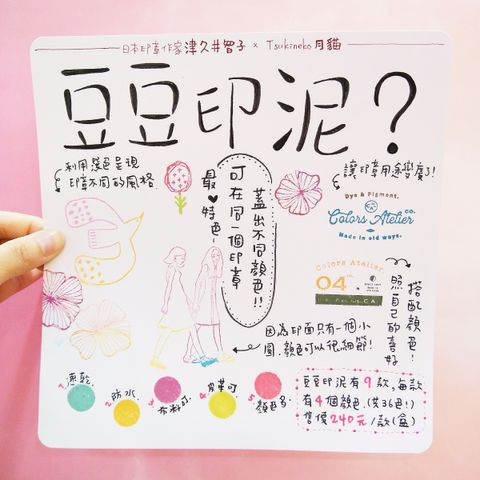 日本印章作家津久井智子 × Tsukineko 月貓
豆豆印泥？
利用漸色呈現
印章不同的風格
最♥特色！
可在同一個印章
蓋出不同顏色!!
讓印章用途變廣了!
Dye & Pigment.
Colors Atelier co.
Made in old ways.
Colors Atelier.
04
搭配顏色！
照自己的喜好
因為印面只有一個小
圓,顏色可以很細節!
1. 速乾.
2. 防水.
3. 布料可.
4. 皮革可
5. 顏色多.
豆豆印泥有9款,每款
有4個顏色.(共36色!)
售價240元/款(盒)